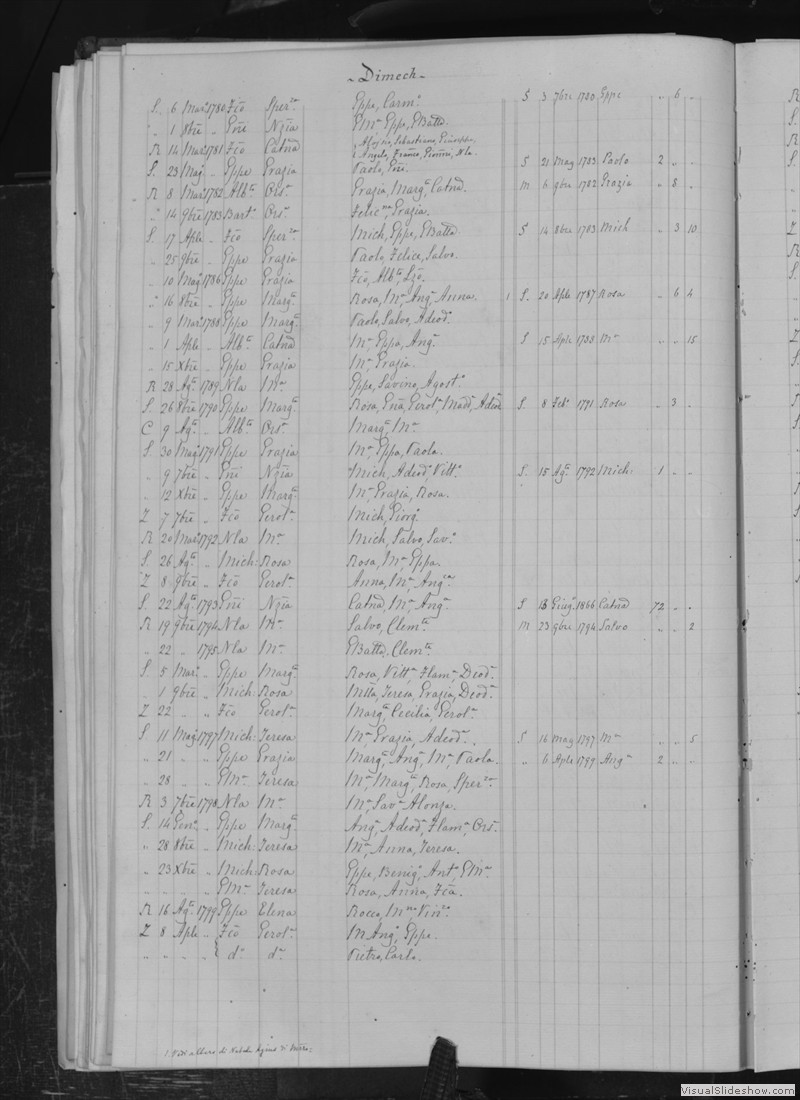 Dimech
S. 6 Mar° 1780 Fco Sper.za Eppe, Carm.° S 3 7bre 1780 Eppe " 6 "
" 1 8bre " Eñi Nzia EMa Eppa, EBatta.
Alojsio, Sebastiano, Giuseppe,
R 14 Mar° 1781 Fco Catña Angelo, Franco, Giovni, Nla.
S. 23 Mag. " Eppe Grazia Paolo, S 21 Mag 1783 Paolo 2 " "
R 8 Mar° 1782 Alb.to Ors.a Grazia, Marg.ta Catña. M 6 9bre 1782 Grazia " 8 "
" 14 9bre 1783 Bart.° Ors.a Felic.na, Grazia.
S. 17 Aple " Fco Sper.za Mich, Eppe, EBatta S 14 8bre 1783 Mich " 3 10
" 25 9bre " Eppe Grazia Paolo, Felice, Salvo.
" 10 Mag° 1786 Eppe Grazia Fco, Alb.to
" 16 8bre " Eppe Marg.ta Rosa, Ma, Ang.a Anna. 1 S. 20 Aple 1787 Rosa " 6 4
" 9 Mar° 1788 Eppe Marg.ta Paolo, Salvo, Adeod.°
" 1 Aple " Alb.to Catña Ma Eppa, Ang.a S 15 Aple 1788 Ma " " 15
" 15 Xbre " Eppe Grazia Ma, Grazia.
R 28 Ag.to 1789 Nla Ma Eppe, Savino, Agost.°
S. 26 8bre 1790 Eppe Marg.ta Rosa, Gña, Gerol.a Mad.a Adeod.a S. 8 Feb.° 1791 Rosa " 3 "
C 9 Ag.to " Alb.to Ors.a Marg.ta, Ma
S. 30 Mag° 1791 Eppe Grazia Ma Eppa, Paola.
" 9 7bre " Eñi Nzia Mich, Adeod.° Vitt.° S. 15 Ag.to 1792 Mich: 1 " "
" 12 Xbre " Eppe Marg.ta Ma, Grazia, Rosa.
Z 7 7bre " Fco Gerol.a Mich, Giorg.°
R 20 Mar° 1792 Nla Ma Mich, Salvo, Sav.°
S. 26 Ag.to " Mich: Rosa Rosa, Ma, Eppa.
Z 8 9bre " Fco Gerol.a Anna, Ma, Ang.ca
S. 22 Ag.to 1793 Eñi Nzia Catña, Ma, Ang.a S 13 Giug.° 1866 Catña 72 " "
R 19 9bre 1794 Nla Ma Salvo, Clem.te M 23 9bre 1794 Salvo " " 2
" 22 " 1795 Nla Ma EBatta, Clem.te
S. 5 Mar° " Eppe Marg.ta Rosa, Vitt.a Flam.a Deod.a
" 1 9bre " Mich: Rosa Teresa, Grazia, Deod.a
Z 22 " " Fco Gerol.a Marg.ta Cecilia, Gerol.a
S 11 Mag° 1797 Mich: Teresa Ma Grazia, Adeod.a S 16 Mag 1797 Ma " " 5
" 21 " " Eppe Grazia Marg.ta Ang.a Ma Paola. " 6 Aple 1799 Ang.a 2 " "
" 28 " " EMa Teresa Ma Marg.ta Rosa, Sper.za
R 3 7bre 1798 Nla Ma Ma Sav.a Alonza.
S. 14 Gen.° " Eppe Marg.ta Ang.a Adeod.a Flam.a, Ors.a
" 28 8bre " Mich: Teresa Ma, Anna, Teresa.
" 23 Xbre " Mich: Rosa Eppe, Benig.° Ant.° EMa
" " " " EMa Teresa Rosa, Anna, Fca.
R 16 Ag.to 1799 Eppe Elena Rocca, Ma Vin.za
Z 8 Aple " Fco Gerol.a M Ang.° Eppe.
" " " " d.° d.a Pietro, Carlo.
1. Vedi albero di
VisualSlideshow.com